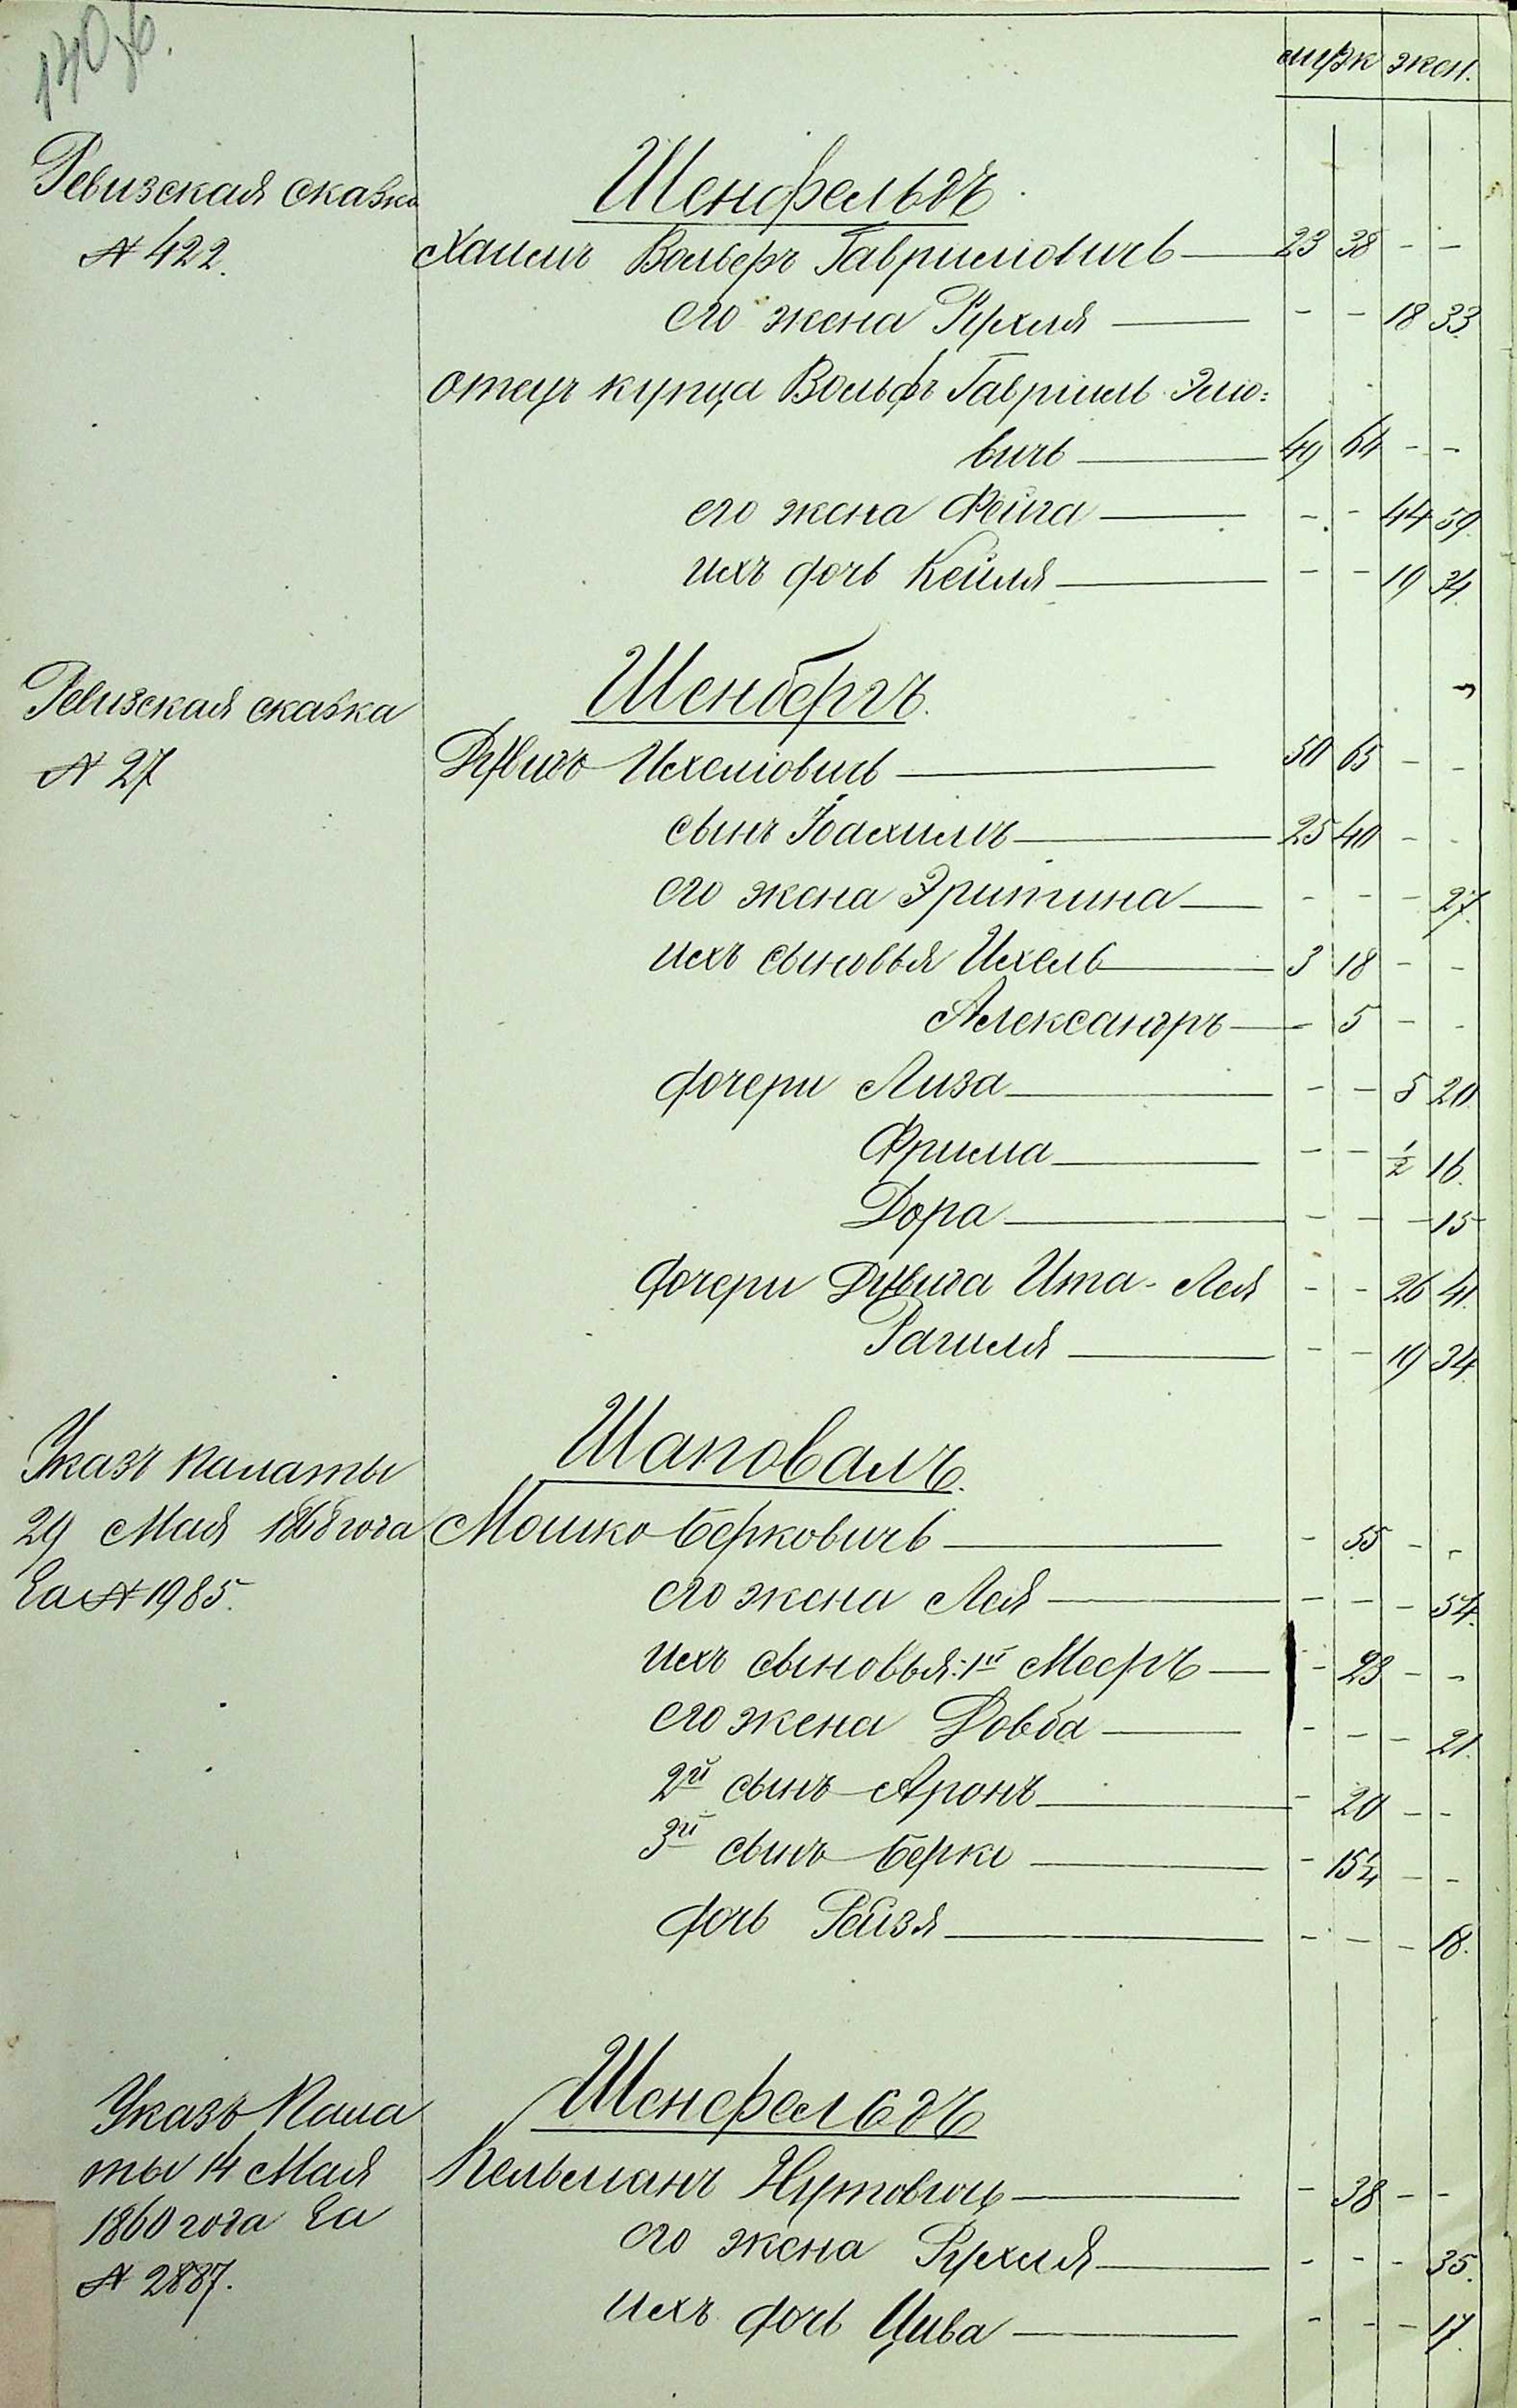 170 об.
муж жен.
Ревизская сказка
№ 422.
Шенфельдъ.
Хаимъ Вольфъ Гавриловичъ 23 38 - -
его жена Рухля - - 18 33.
отецъ купца Вольфъ Гавріилъ Эліо=
вичъ 49 64 - -
его жена Фейга - - 44 59.
ихъ дочь Кейля - - 19 34.
Ревизская сказка
№ 27
Шенбергъ.
Ихеліовичъ 50 65 - -
сынъ Іоахимъ 25 40 - -
его жена Эритина - - - 27.
ихъ сыновья Ихель 3 18 - -
Александръ - 5 - -
дочери Лиза - - 5 20.
Фрима - - 1/2 16.
Дора - - - 15
дочери Ита-Лея - - 26 41.
Рахиля - - 19 34.
Указъ палаты
29 Мая 1868 года
за № 1985.
Шаповалъ.
Мошко Берковичъ - 55 - -
его жена Лея - - - 54.
ихъ сыновья: 1й Мееръ - 23 - -
его жена Довба - - - 21.
2й сынъ Аронъ - 20 - -
3й сынъ Берко - 15 1/4 - -
дочь Рейзя - - - 18.
Указъ Пала
ты 14 Мая
1860 года за
№ 2887.
Шенфельдъ
Кельманъ Нутовичъ - 38 - -
его жена Рухля - - - 35.
ихъ дочь Цива - - - 17.